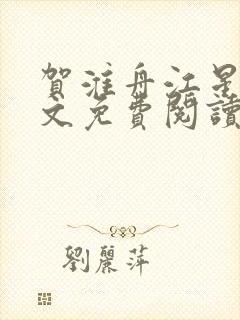 賀淮舟江星
文免費閱讀
劉麗萍